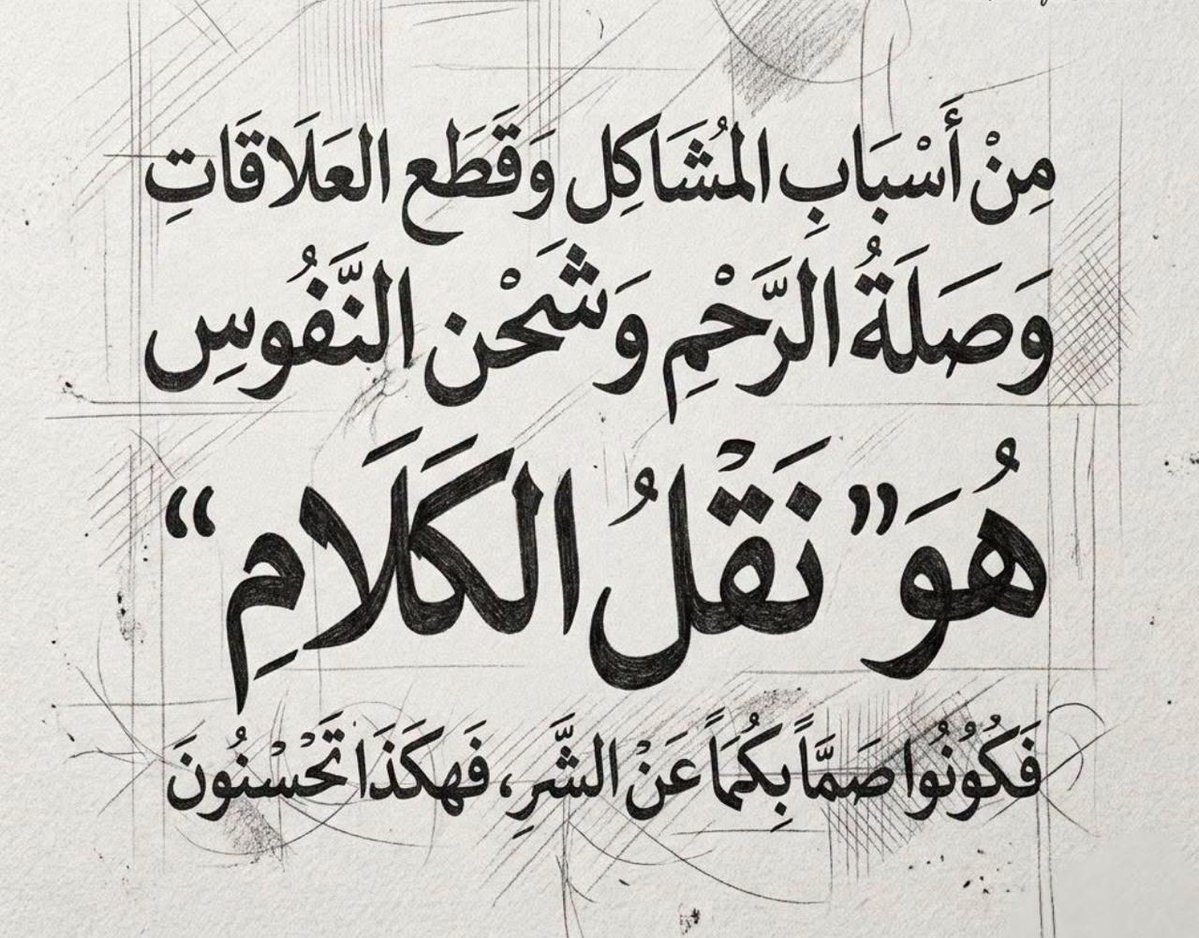 مِنْ أَسْبَابِ المُشَاكِل وَقَطَع العَلَاقَاتِ
وَصَلَةُ الرَّحْمِ وَشَحْن النَّفُوسِ
هُوَ ”نَقْلُ الكَلَامِ“
فَكُونُوا صَمَّاً بِكُمَاً عَنْ الشَّرِ، فَهكَذَا تَحْسْنُونَ